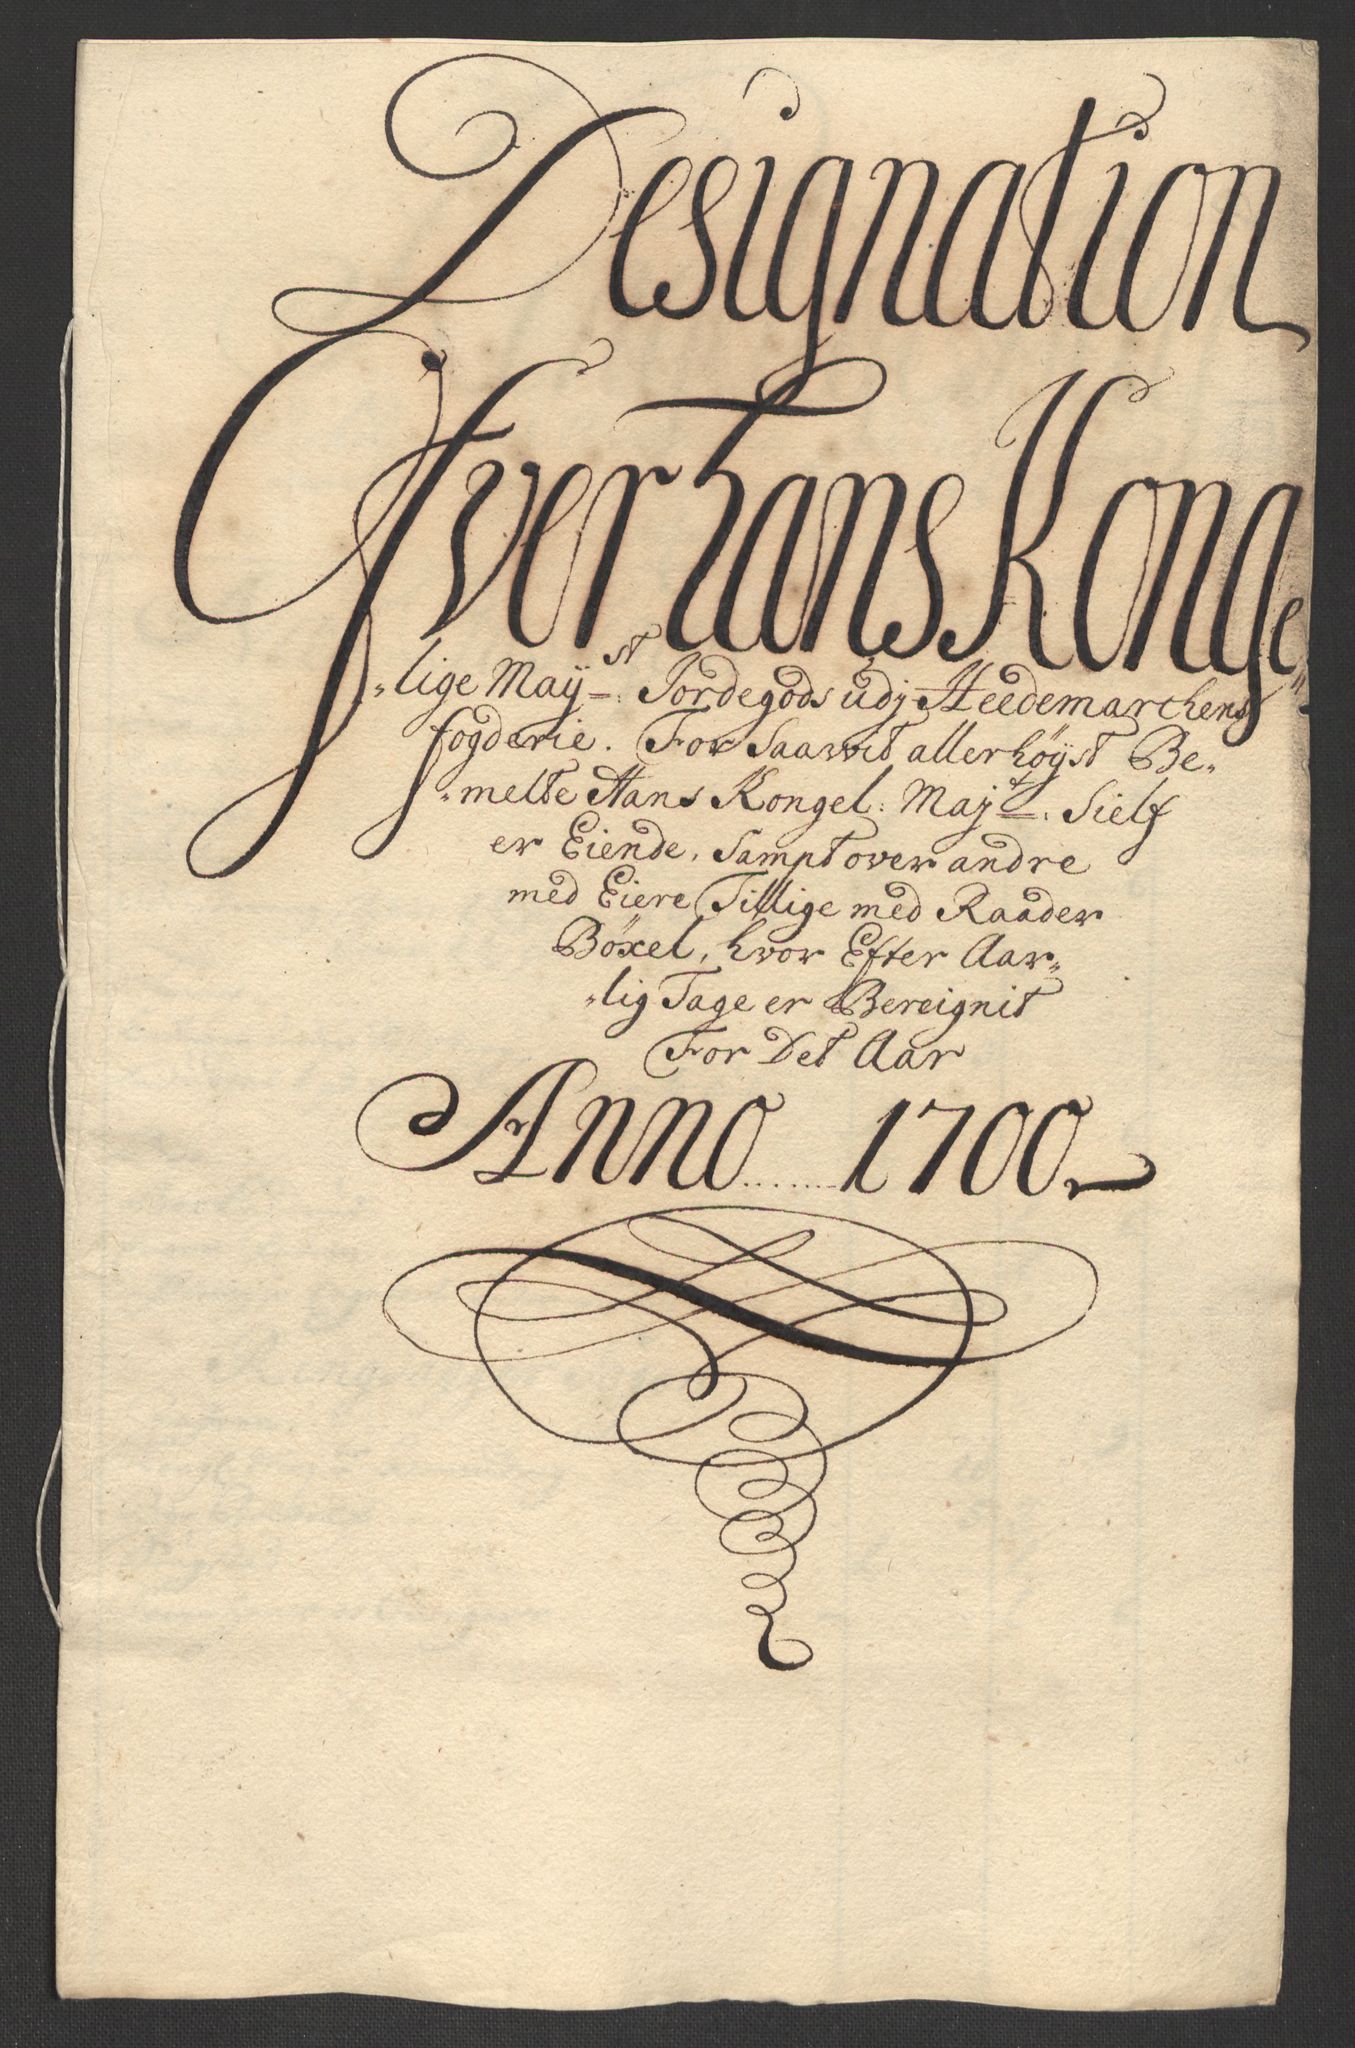 Designation
Ofver Hans Konge„
„lige Maÿst: Jordegods udj Heedemarchens
fogderie. For Saavit allerhöÿst Be„
„melte Hans Kongel: Maÿt: Sielf
er Eiende, Sampt over andre
med Eiere Tillige med Raader
Böxel, hvor Efter Aar„
„lig Tage er Bereignit
For Det Aar
Anno ...... 1700